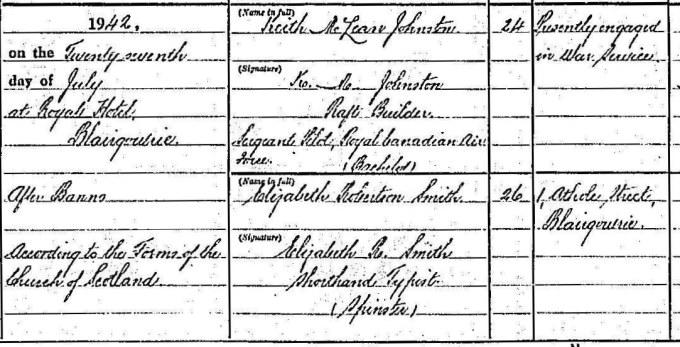 1942.
on the Twenty seventh
day of July
at Royal Hotel,
Blairgowrie.
After Banns
According to the Forms of the
Church of Scotland.
(Name in full)
Keith McLean Johnston
(Signature)
K. M. Johnston
Raft Builder.
Sergeant Pilot, Royal Canadian Air
Force.
(Bachelor)
(Name in full)
Elizabeth Robertson Smith
(Signature)
Elizabeth R. Smith
Shorthand Typist.
(Spinster)
24
26
Presently engaged
in War Service.
1, Athole Street,
Blairgowrie.